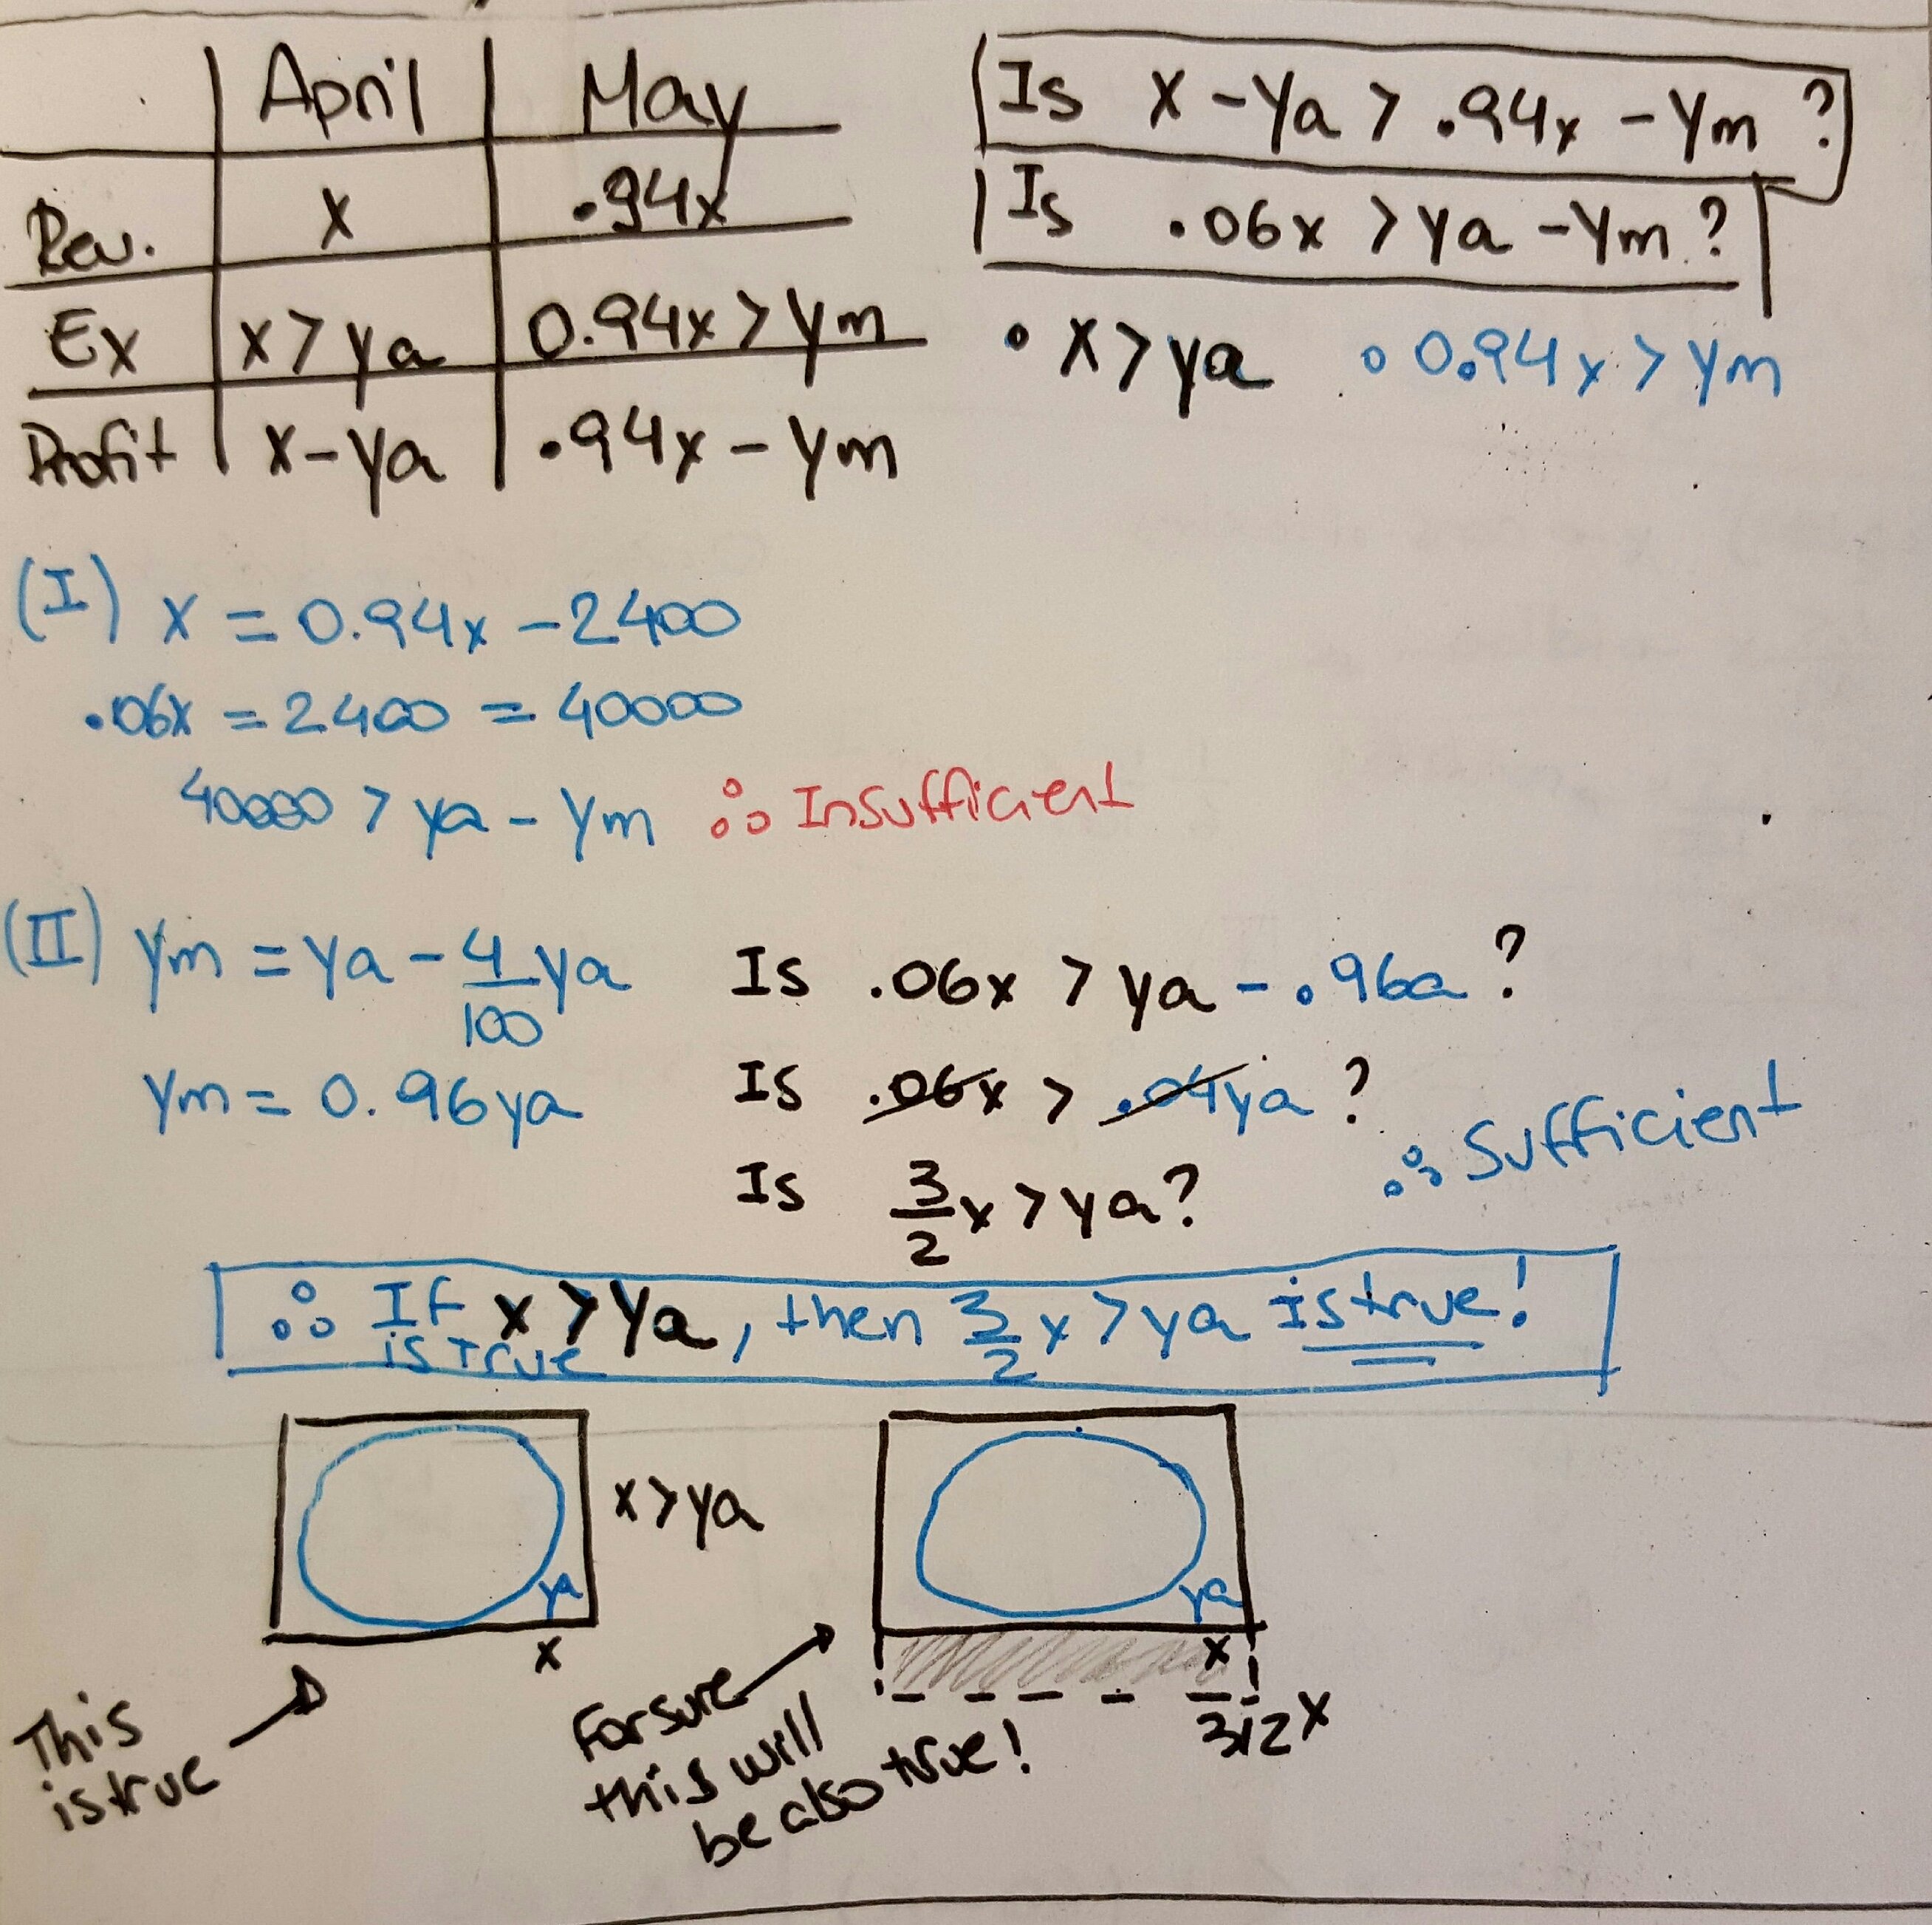 April May
Rev. x .94x
Ex x > ya 0.94x > ym
Profit x - ya .94x - ym
Is x - ya > .94x - ym ?
Is .06x > ya - ym ?
• x > ya ∘ 0.94x > ym
(I) x = 0.94x - 2400
.06x = 2400 = 40000
40000 > ya - ym ∴ Insufficient
(II) ym = ya - 4/100 ya
ym = 0.96ya
Is .06x > ya - .96a ?
Is .06x > .04ya ?
Is 3/2 x > ya?
∴ Sufficient
∴ If x > ya, then 3/2 x > ya is true!
is true
x > ya
ya
x
ya
x
3/2x
This
is true
For sure
this will
be also true!